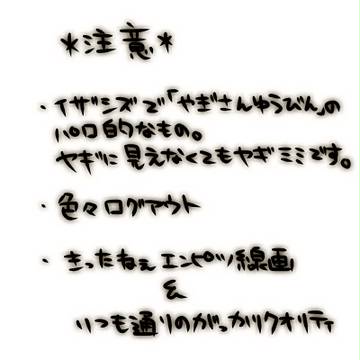 *注意*
・イザシズで「やぎさんゆうびん」の
パロ的なもの。
ヤギに見えなくてもヤギミミです。
・色々ログアウト
・きったねぇエンピツ線画
&
いつも通りのがっかりクオリティ